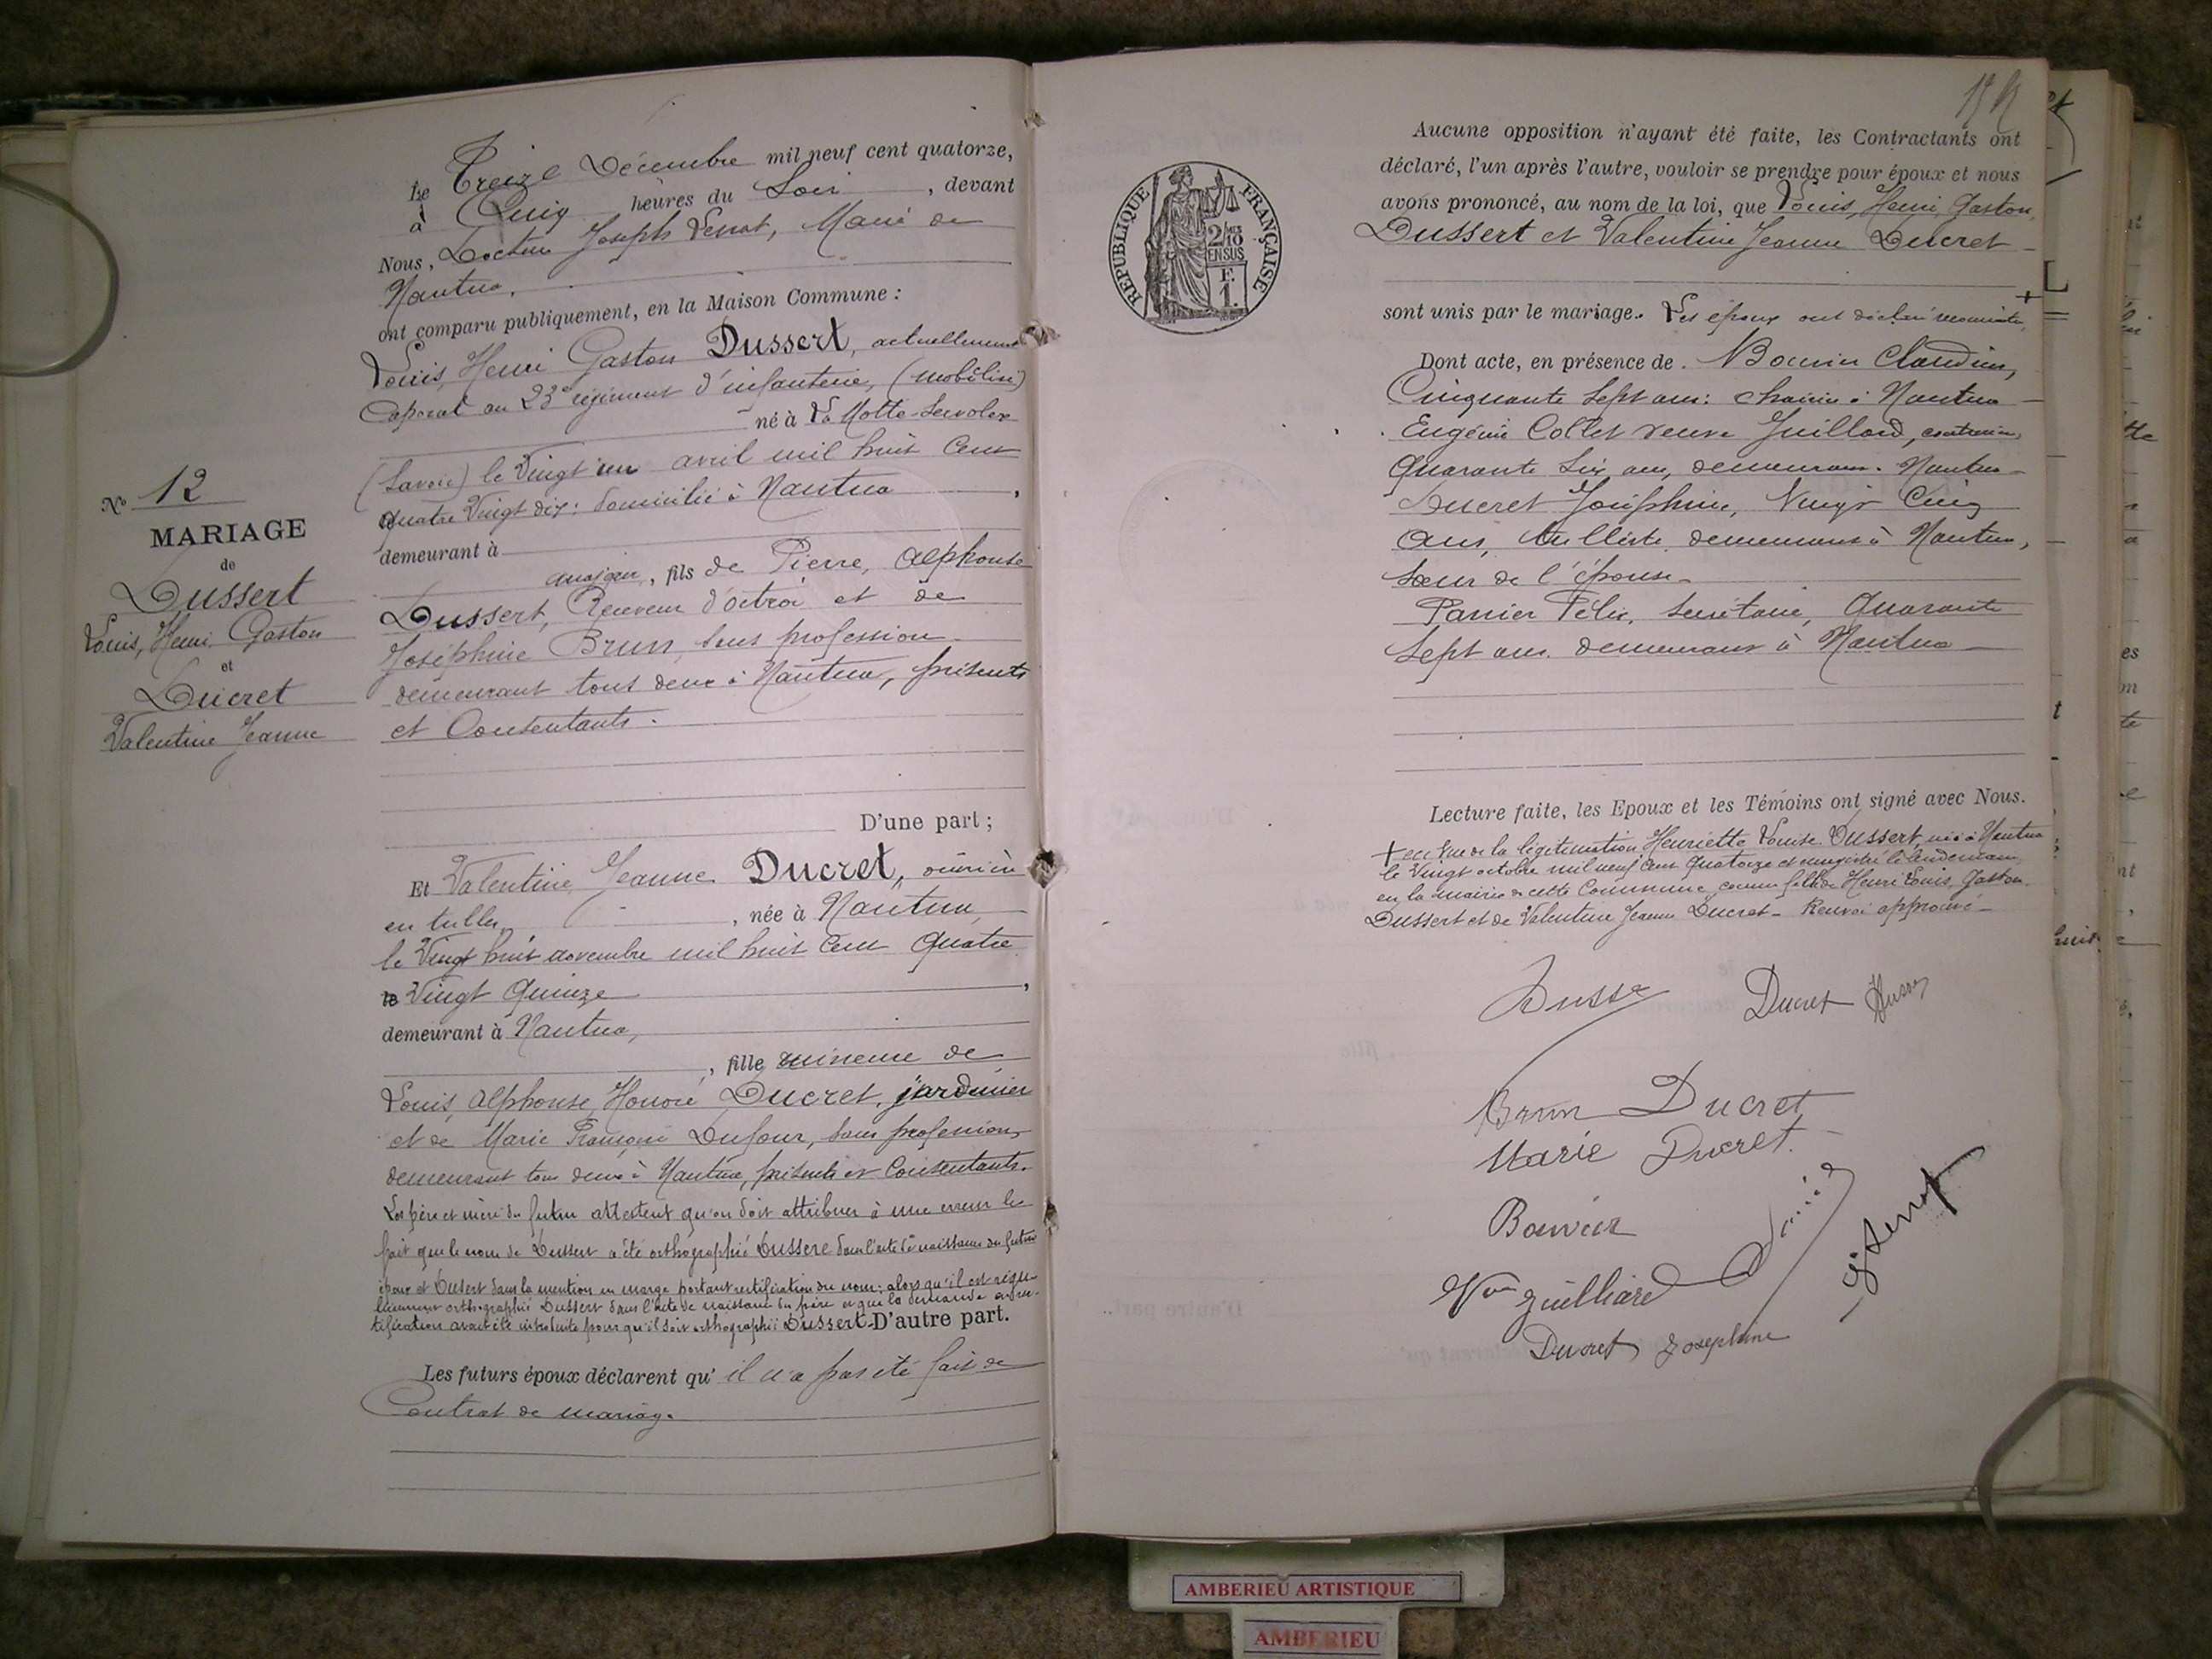 N° 12
MARIAGE
de
Dussert
Louis, Henri Gaston
et
Ducret
Valentine Jeanne
Le Treize Décembre mil neuf cent quatorze,
à Cinq heures du Soir, devant
Nous, Docteur Joseph Mairé de
Nantua.
ont comparu publiquement, en la Maison Commune :
Louis, Henri Gaston Dussert, actuellement
Caporal au 23e régiment d'infanterie, (mobilisé)
né à La Motte-Servolex
(Savoie) le Vingt un avril mil huit Cent
quatre Vingt dix: domicilié à Nantua,
demeurant à
majeur, fils de Pierre, Alphonse
Dussert, Receveur d'octroi et de
Joséphine Brun, sans profession
demeurant tous deux à Nantua, présents
et Consentants.
D'une part ;
Et Valentine Jeanne Ducret, ouvrière
en tulles, née à Nantua,
le Vingt huit novembre mil huit Cent Quatre
Vingt Quinze,
demeurant à Nantua,
, fille mineure de
Louis, Alphonse, Honoré Ducret, jardinier
et de Marie Françoise Dufour, sans profession
demeurant tous deux à Nantua, présents et Consentants.
Les père et mère du futur attestent qu'on doit attribuer à une erreur le
fait que le nom de Dussert a été orthographié Dussere dans l'acte de naissance du futur
époux et Dusert dans la mention en marge portant rectification du nom; alors qu'il est régu-
lièrement orthographié Dussert dans l'acte de naissance du père et que la demande en rec-
tification avait été introduite pour qu'il soit orthographié Dussert - D'autre part.
Les futurs époux déclarent qu'il n'a pas été fait de
Contrat de mariage
REPUBLIQUE FRANÇAISE
2/10
EN SUS
F.
1.
Aucune opposition n'ayant été faite, les Contractants ont
déclaré, l'un après l'autre, vouloir se prendre pour époux et nous
avons prononcé, au nom de la loi, que Louis, Henri, Gaston,
Dussert et Valentine Jeanne Ducret
sont unis par le mariage. Les époux ont déclaré +
Dont acte, en présence de. Bouvier Claudius,
Cinquante Sept ans: à Nantua
Eugénie Collet veuve Juillard,
Quarante Six ans, demeurant Nantua
Ducret Joséphine, Vingt Cinq
ans, tulliste, demeurant à Nantua,
Sœur de l'épouse
Panier Félix, Secrétaire, Quarante
Sept ans demeurant à Nantua
Lecture faite, les Epoux et les Témoins ont signé avec Nous.
+ en vue de la légitimation Henriette Louise Dussert, née à Nantua
le Vingt octobre mil neuf Cent Quatorze et enregistrée le lendemain
en la mairie de cette Commune comme fille de Henri Louis, Gaston
Dussert et de Valentine Jeanne Ducret - Renvoi approuvé -
Ducret
Brun Ducret
Marie Ducret
Bouvier
Vve Juilliard
Ducret Josephine
AMBERIEU ARTISTIQUE
AMBERIEU